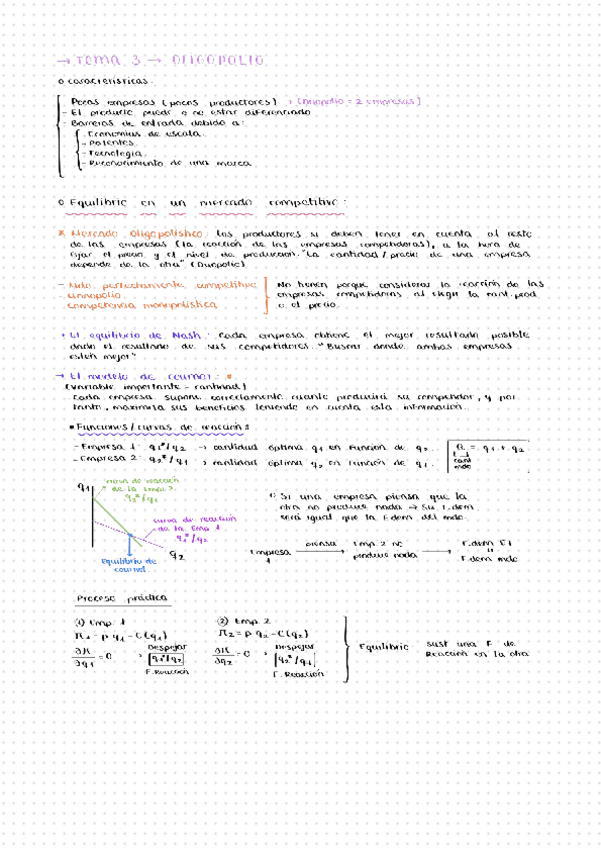 → TEMA 3 → OLIGOPOLIO
o características:
- Pocas empresas (pocos productores) → (Duopolio = 2 empresas)
- El producto puede o no estar diferenciado
- Barreras de entrada debido a:
- Economías de escala.
- Patentes.
- Tecnología.
- Reconocimiento de una marca
o Equilibrio en un mercado competitivo:
* Mercado oligopolístico: los productores si deben tener en cuenta al resto
de las empresas (la reacción de las empresas competidoras), a la hora de
fijar el precio y el nivel de producción. "La cantidad/precio de una empresa
depende de la otra" (Duopolio)
- Mdo. perfectamente competitivo
- Monopolio
- Competencia monopolística
No tienen porque considerar la reacción de las
empresas competidoras al elegir la cant. prod
o el precio.
• El equilibrio de Nash: Cada empresa obtiene el mejor resultado posible
dado el resultado de sus competidores. "Buscar donde ambas empresas
estén mejor"
→ El modelo de Cournot:
(variable importante - cantidad)
Cada empresa supone correctamente cuanto producirá su competidor, y por
tanto, maximiza sus beneficios teniendo en cuenta esta información.
• Funciones/curvas de reacción:
- Empresa 1: q₁*/q₂ → cantidad óptima q₁ en función de q₂.
- Empresa 2: q₂*/q₁ → cantidad óptima q₂ en función de q₁.
Q = q₁ + q₂
cant
mdo
q₁
curva de reacción
de la Emp. 2.
q₂*/q₁
curva de reacción
de la Emp 1
q₁*/q₂
q₂
Equilibrio de
cournot.
Si una empresa piensa que la
otra no produce nada → Su F.dem
será igual que la F.dem del mdo.
Empresa 1
piensa
Emp. 2 no
produce nada
F.dem E1
=
F.dem mdo
Proceso práctica
(1) Emp. 1
π₁ = p·q₁ - C(q₁)
∂π/∂q₁ = 0
Despejar
q₁*/q₂
F. Reacción
(2) Emp. 2
π₂ = p·q₂ - C(q₂)
∂π/∂q₂ = 0
Despejar
q₂*/q₁
F. Reacción
Equilibrio
sust una F. de
Reacción en la otra